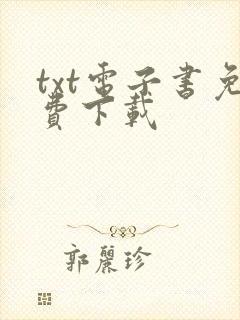 txt電子書免
費下載
郭麗珍